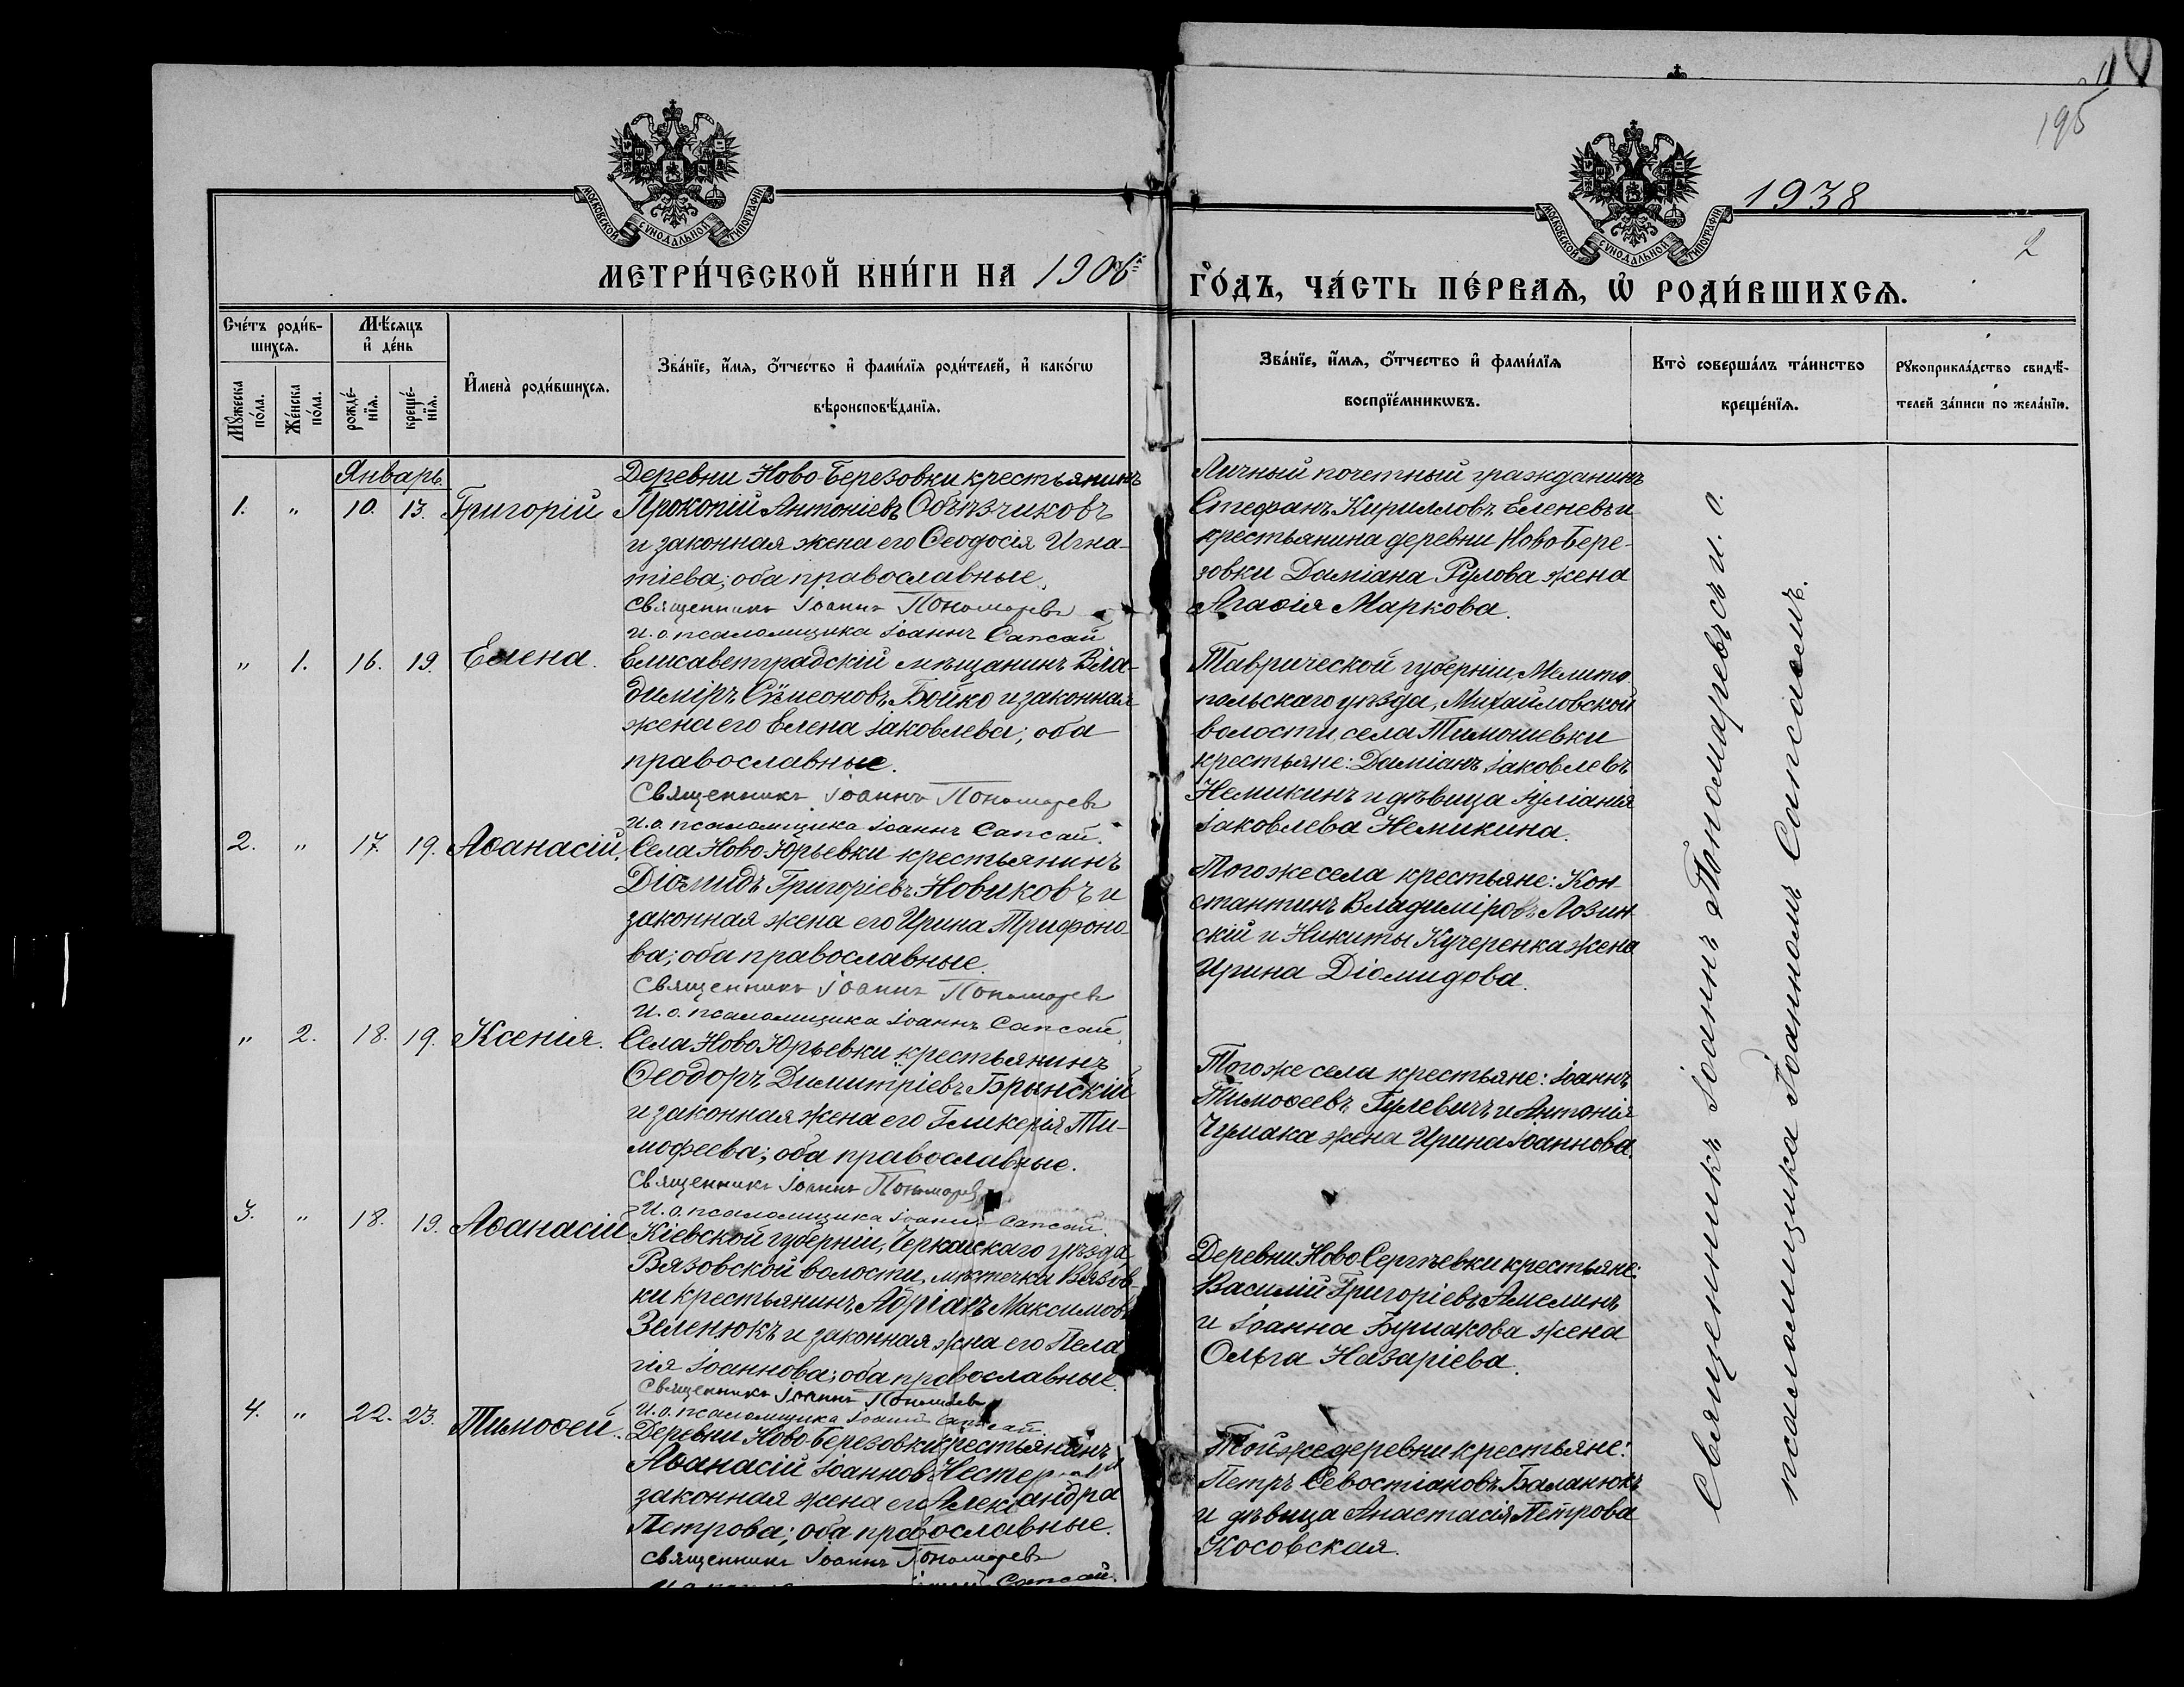 195
1938
2
МОСКОВСКОЙ СѴНОДАЛЬНОЙ ТИПОГРАФІИ
МОСКОВСКОЙ СѴНОДАЛЬНОЙ ТИПОГРАФІИ
МЕТРИ́ЧЕСКОЙ КНИ́ГИ НА 1906й
ГО́ДЪ, ЧА́СТЬ ПЕ́РВАѦ, Ѡ҆ РОДИ́ВШИХСѦ.
Сче́тъ роди́в-
шихсѧ.
Мꙋ́жеска по́ла.
Же́нска по́ла.
Мѣ́сѧцъ
и҆ де́нь
рожде́-
нїѧ.
креще́-
нїѧ.
И҆мена̀ роди́вшихсѧ.
Зва́нїе, и҆́мѧ, ѻ҆́тчество и҆ фами́лїѧ роди́телей, и҆ како́гѡ
вѣроисповѣ́данїѧ.
Зва́нїе, и҆́мѧ, ѻ҆́тчество и҆ фами́лїѧ
воспрїе́мникѡвъ.
Кто̀ соверша́лъ та́инство
креще́нїѧ.
Рꙋкоприкла́дство свидѣ́-
телей за́писи по жела́нїю.
Январь.
1. " 10. 13. Григорій
Деревни Ново-Березовки крестьянинъ
Прокопій Антоніевъ Объѣзчиковъ
и законная жена его Ѳеодосія Игна-
тіева; оба православные.
Священникъ Іоаннъ Пономаревъ
И. о. псаломщика Іоаннъ Сапсай
Личный почетный гражданинъ
Стефанъ Кирилловъ Еленевъ и
крестьянина деревни Ново Бере-
зовки Даміана Рулова жена
Агаѳія Маркова.
" 1. 16. 19. Елена.
Елисаветградскій мѣщанинъ Вла-
диміръ Сѵмеоновъ Бойко и законная
жена его Елена Іаковлева; оба
православные.
Священникъ Іоаннъ Пономаревъ
И. о. псаломщика Іоаннъ Сапсай.
Таврической губерніи, Мелито
польскаго уѣзда, Михайловской
волости, села Тимошевки
крестьяне: Даміанъ Іаковлевъ
Немикинъ и дѣвица Іуліанія
Іаковлева Немикина.
2. " 17. 19. Аѳанасій.
Села Ново Юрьевки крестьянинъ
Діомидъ Григоріевъ Новиковъ и
законная жена его Ирина Трифоно-
ва; оба православные.
Священникъ Іоаннъ Пономаревъ
И. о. псаломщика Іоаннъ Сапсай.
Того же села крестьяне: Кон-
стантинъ Владиміровъ Лозин-
скій и Никиты Кучеренка жена
Ирина Діомидова.
" 2. 18. 19. Ксенія.
Села Ново Юрьевки крестьянинъ
Ѳеодоръ Димитріевъ Брынскій
и законная жена его Гликерія Ти-
мофеева; оба православные.
Священникъ Іоаннъ Пономаревъ
И. о. псаломщика Іоаннъ Сапсай.
Того же села крестьяне: Іоаннъ
Тимоѳеевъ Гулевичъ и Антонія
Чумака жена Ирина Іоаннова.
3. " 18. 19. Аѳанасій
Кіевской губерніи, Черкасскаго уѣзда,
Вязовской волости, мѣстечка Вязов-
ки крестьянинъ Адріанъ Максимовъ
Зеленюкъ и законная жена его Пела
гія Іоаннова; оба православные.
Священникъ Іоаннъ Пономаревъ
И. о. псаломщика Іоаннъ Сапсай.
Деревни Ново Сергѣевки крестьяне:
Василій Григоріевъ Амелинъ
и Іоанна Бурлакова жена
Ольга Назаріева.
4. " 22. 23. Тимоѳей.
Деревни Ново-Березовки крестьянинъ
Аѳанасій Іоанновъ и
законная жена его Александра
Петрова; оба православные.
Священникъ Іоаннъ Пономаревъ
Сапсай.
Той же деревни крестьяне:
Петръ Севостіановъ Баланюкъ
и дѣвица Анастасія Петрова
Косовская.
Священникъ Іоаннъ Пономаревъ съ и. о.
псаломщика Іоанномъ Сапсаемъ.